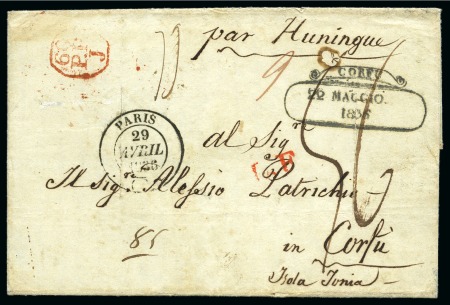 par Huningue
60
P.P.
J
CORFU
22 MAGGIO.
1836
PARIS
29
AVRIL
1836
al Sig.r
L.F
Il sig.r Alessio Patrichio
85
in Corfù
Isola Ionia